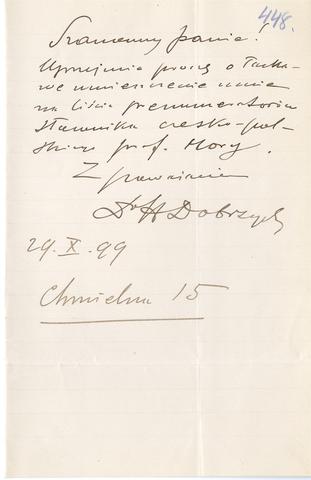 448.
Szanowny Panie!
Uprzejmie proszę o łaska-
we umieszczenie mnie
na liście prenumeratorów
słownika czesko-pol-
skiego prof. Hory.
Z poważaniem
Dr H Dobrzycki
29. X. 99
Chmielna 15